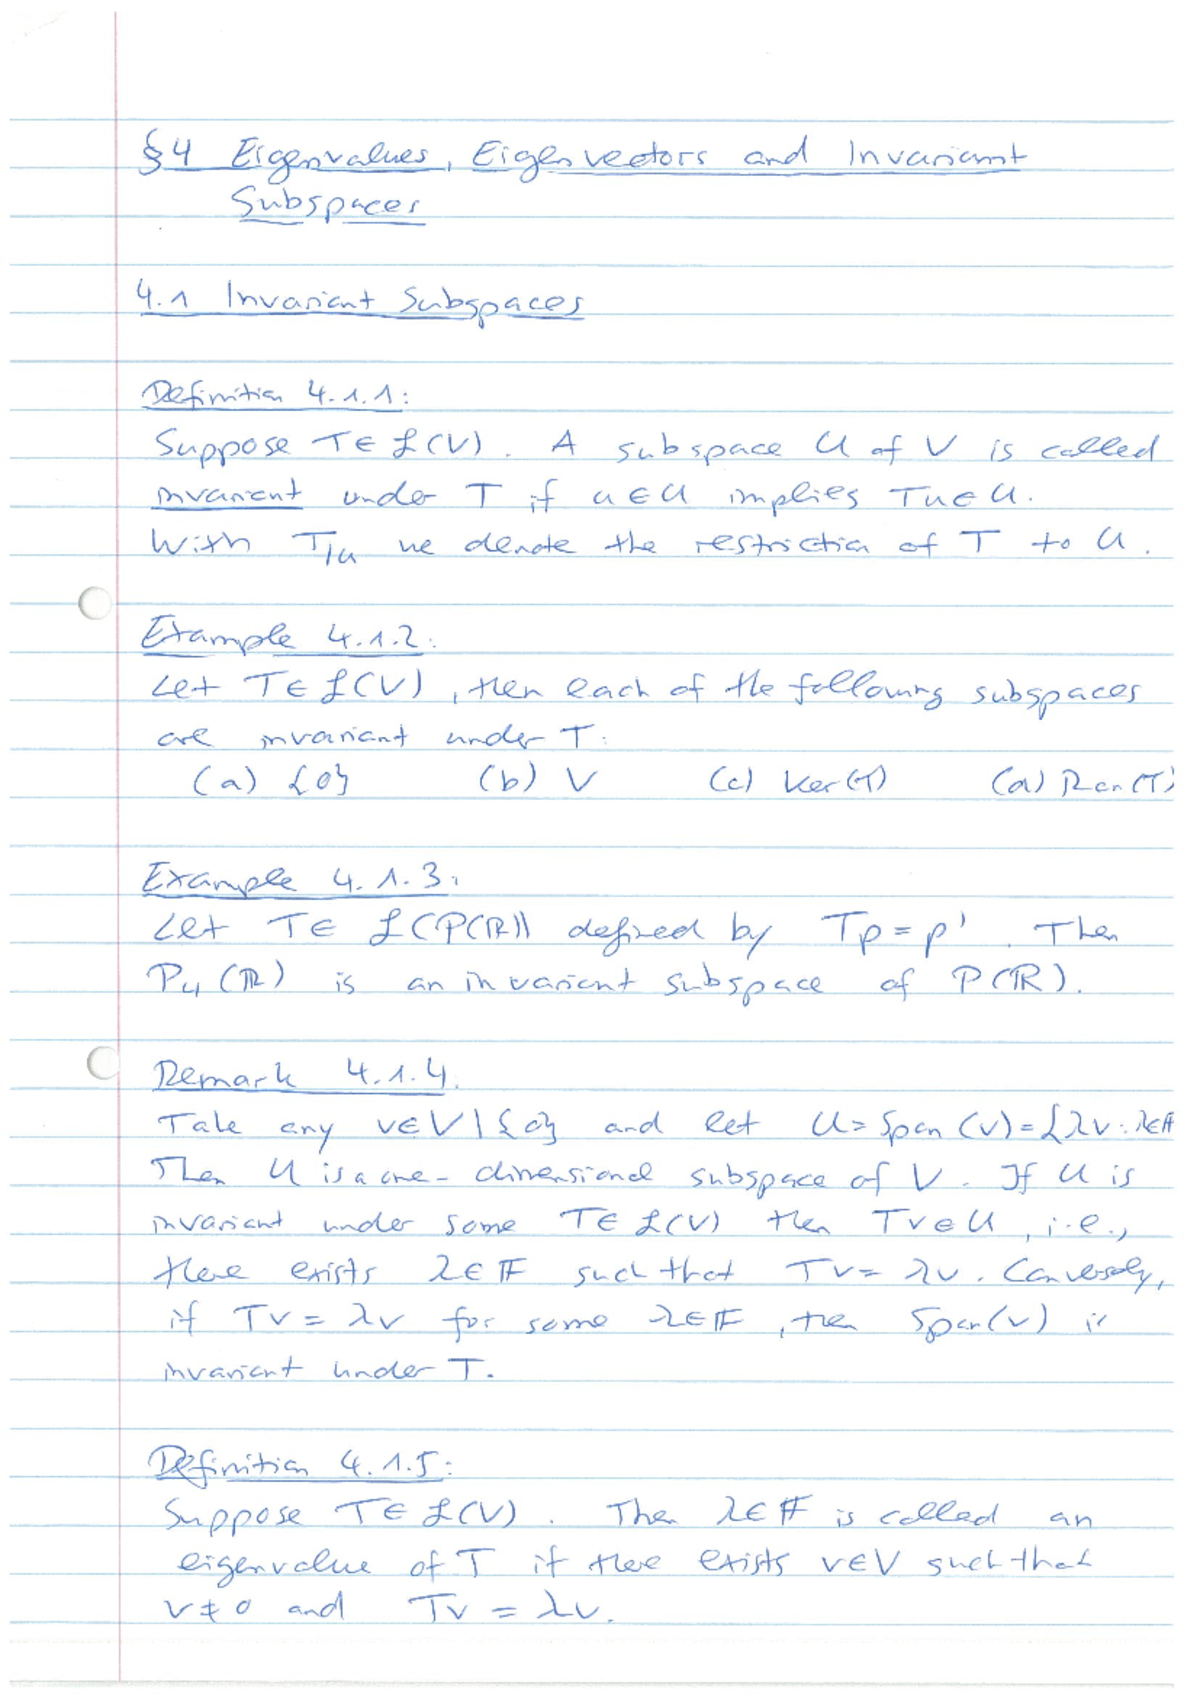 §4 Eigenvalues, Eigenvectors and Invariant
Subspaces
4.1 Invariant Subspaces
Definition 4.1.1:
Suppose T∈ℒ(V). A subspace U of V is called
invariant under T if u∈U implies Tu∈U.
With T|U we denote the restriction of T to U.
Example 4.1.2:
Let T∈ℒ(V), then each of the following subspaces
are invariant under T:
(a) {0} (b) V (c) Ker(T) (d) Ran(T)
Example 4.1.3:
Let T∈ ℒ(P(ℝ)) defined by Tp=p'. Then
P₄(ℝ) is an invariant subspace of P(ℝ).
Remark 4.1.4.
Take any v∈V\{0} and let U=Span(v)={λv:λ∈𝔽
Then U is a one-dimensional subspace of V. If U is
invariant under some T∈ℒ(V) then Tv∈U, i.e.,
there exists λ∈𝔽 such that Tv=λv. Conversely,
if Tv=λv for some λ∈𝔽, then Span(v) is
invariant under T.
Definition 4.1.5:
Suppose T∈ℒ(V). Then λ∈𝔽 is called an
eigenvalue of T if there exists v∈V such that
v≠0 and Tv=λv.